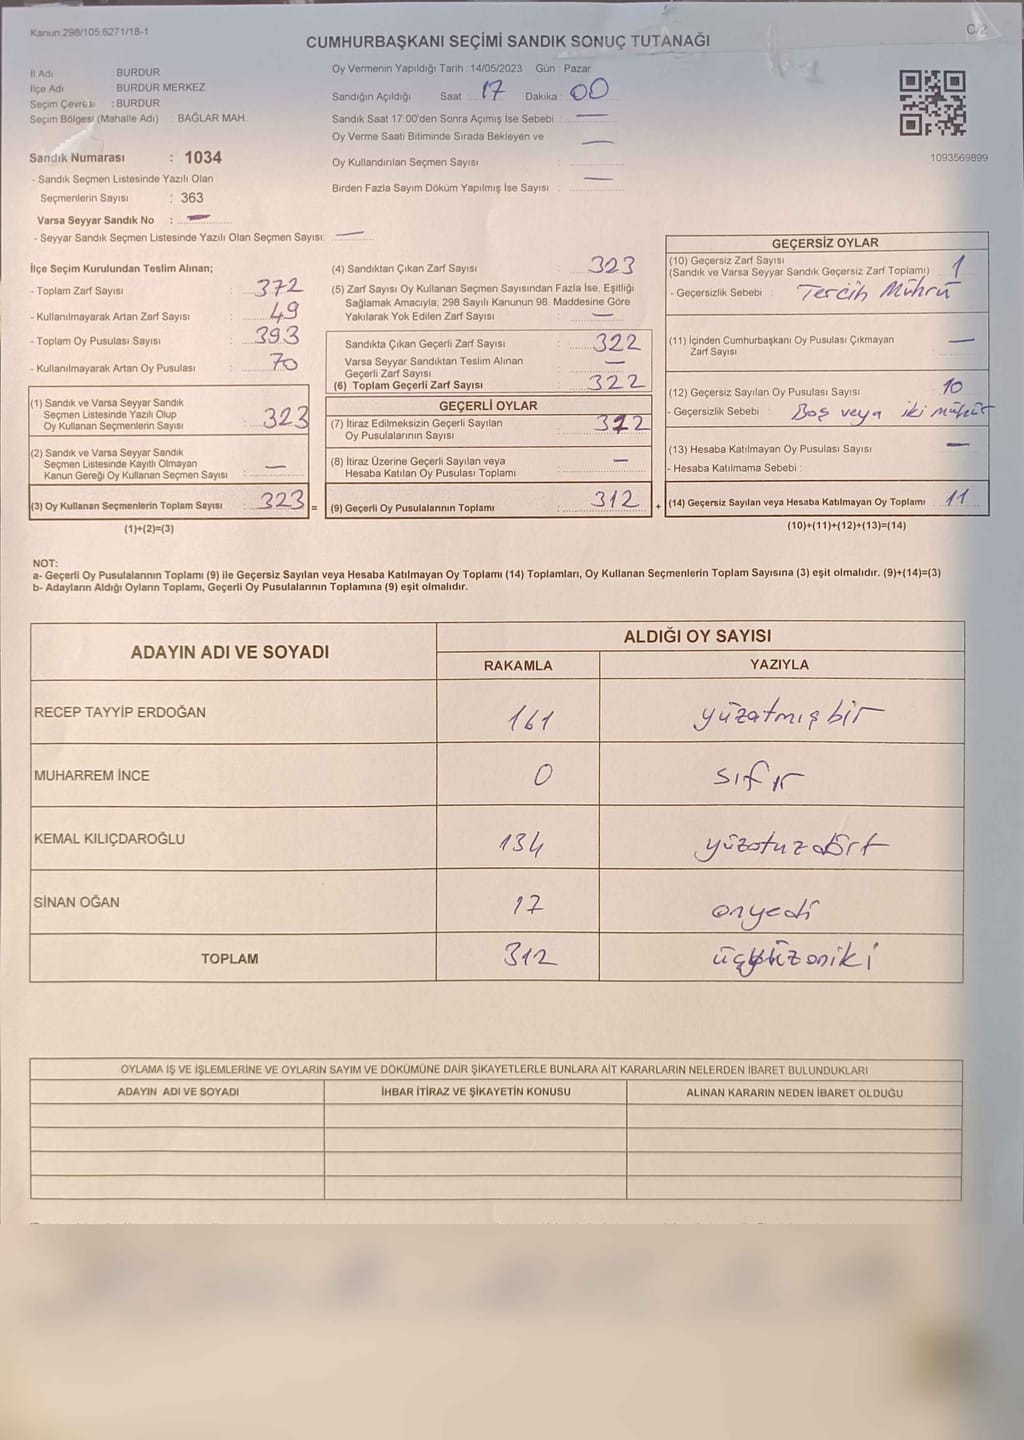 Kanun.298/105.6271/18-1
C/2
CUMHURBAŞKANI SEÇİMİ SANDIK SONUÇ TUTANAĞI
İl Adı BURDUR
İlçe Adı BURDUR MERKEZ
Seçim Çevresi : BURDUR
Seçim Bölgesi (Mahalle Adı) : BAĞLAR MAH.
Sandık Numarası : 1034
- Sandık Seçmen Listesinde Yazılı Olan
Seçmenlerin Sayısı : 363
Varsa Seyyar Sandık No : —
- Seyyar Sandık Seçmen Listesinde Yazılı Olan Seçmen Sayısı: —
Oy Vermenin Yapıldığı Tarih : 14/05/2023 Gün : Pazar
Sandığın Açıldığı Saat : 17 Dakika : 00
Sandık Saat 17:00'den Sonra Açımış İse Sebebi : —
Oy Verme Saati Bitiminde Sırada Bekleyen ve —
Oy Kullandırılan Seçmen Sayısı :
Birden Fazla Sayım Döküm Yapılmış İse Sayısı : —
1093569899
İlçe Seçim Kurulundan Teslim Alınan;
- Toplam Zarf Sayısı : 372
- Kullanılmayarak Artan Zarf Sayısı : 49
- Toplam Oy Pusulası Sayısı : 393
- Kullanılmayarak Artan Oy Pusulası : 70
(1) Sandık ve Varsa Seyyar Sandık
Seçmen Listesinde Yazılı Olup
Oy Kullanan Seçmenlerin Sayısı : 323
(2) Sandık ve Varsa Seyyar Sandık
Seçmen Listesinde Kayıtlı Olmayan
Kanun Gereği Oy Kullanan Seçmen Sayısı : —
(3) Oy Kullanan Seçmenlerin Toplam Sayısı : 323 =
(1)+(2)=(3)
(4) Sandıktan Çıkan Zarf Sayısı : 323
(5) Zarf Sayısı Oy Kullanan Seçmen Sayısından Fazla İse, Eşitliği
Sağlamak Amacıyla; 298 Sayılı Kanunun 98. Maddesine Göre
Yakılarak Yok Edilen Zarf Sayısı : —
Sandıkta Çıkan Geçerli Zarf Sayısı : 322
Varsa Seyyar Sandıktan Teslim Alınan
Geçerli Zarf Sayısı : —
(6) Toplam Geçerli Zarf Sayısı : 322
GEÇERLİ OYLAR
(7) İtiraz Edilmeksizin Geçerli Sayılan
Oy Pusulalarının Sayısı : 312
(8) İtiraz Üzerine Geçerli Sayılan veya
Hesaba Katılan Oy Pusulası Toplamı : —
(9) Geçerli Oy Pusulalarının Toplamı : 312 +
GEÇERSİZ OYLAR
(10) Geçersiz Zarf Sayısı
(Sandık ve Varsa Seyyar Sandık Geçersiz Zarf Toplamı) : 1
- Geçersizlik Sebebi : Tercih Mührü
(11) İçinden Cumhurbaşkanı Oy Pusulası Çıkmayan
Zarf Sayısı : —
(12) Geçersiz Sayılan Oy Pusulası Sayısı : 10
- Geçersizlik Sebebi : Boş veya iki mühür
(13) Hesaba Katılmayan Oy Pusulası Sayısı : —
- Hesaba Katılmama Sebebi :
(14) Geçersiz Sayılan veya Hesaba Katılmayan Oy Toplamı : 11
(10)+(11)+(12)+(13)=(14)
NOT:
a- Geçerli Oy Pusulalarının Toplamı (9) ile Geçersiz Sayılan veya Hesaba Katılmayan Oy Toplamı (14) Toplamları, Oy Kullanan Seçmenlerin Toplam Sayısına (3) eşit olmalıdır. (9)+(14)=(3)
b- Adayların Aldığı Oyların Toplamı, Geçerli Oy Pusulalarının Toplamına (9) eşit olmalıdır.
ADAYIN ADI VE SOYADI ALDIĞI OY SAYISI
RAKAMLA YAZIYLA
RECEP TAYYİP ERDOĞAN 161 yüzatmışbir
MUHARREM İNCE 0 sıfır
KEMAL KILIÇDAROĞLU 134 yüzotuzdört
SİNAN OĞAN 17 onyedi
TOPLAM 312 üçyüzoniki
OYLAMA İŞ VE İŞLEMLERİNE VE OYLARIN SAYIM VE DÖKÜMÜNE DAİR ŞİKAYETLERLE BUNLARA AİT KARARLARIN NELERDEN İBARET BULUNDUKLARI
ADAYIN ADI VE SOYADI İHBAR İTİRAZ VE ŞİKAYETİN KONUSU ALINAN KARARIN NEDEN İBARET OLDUĞU